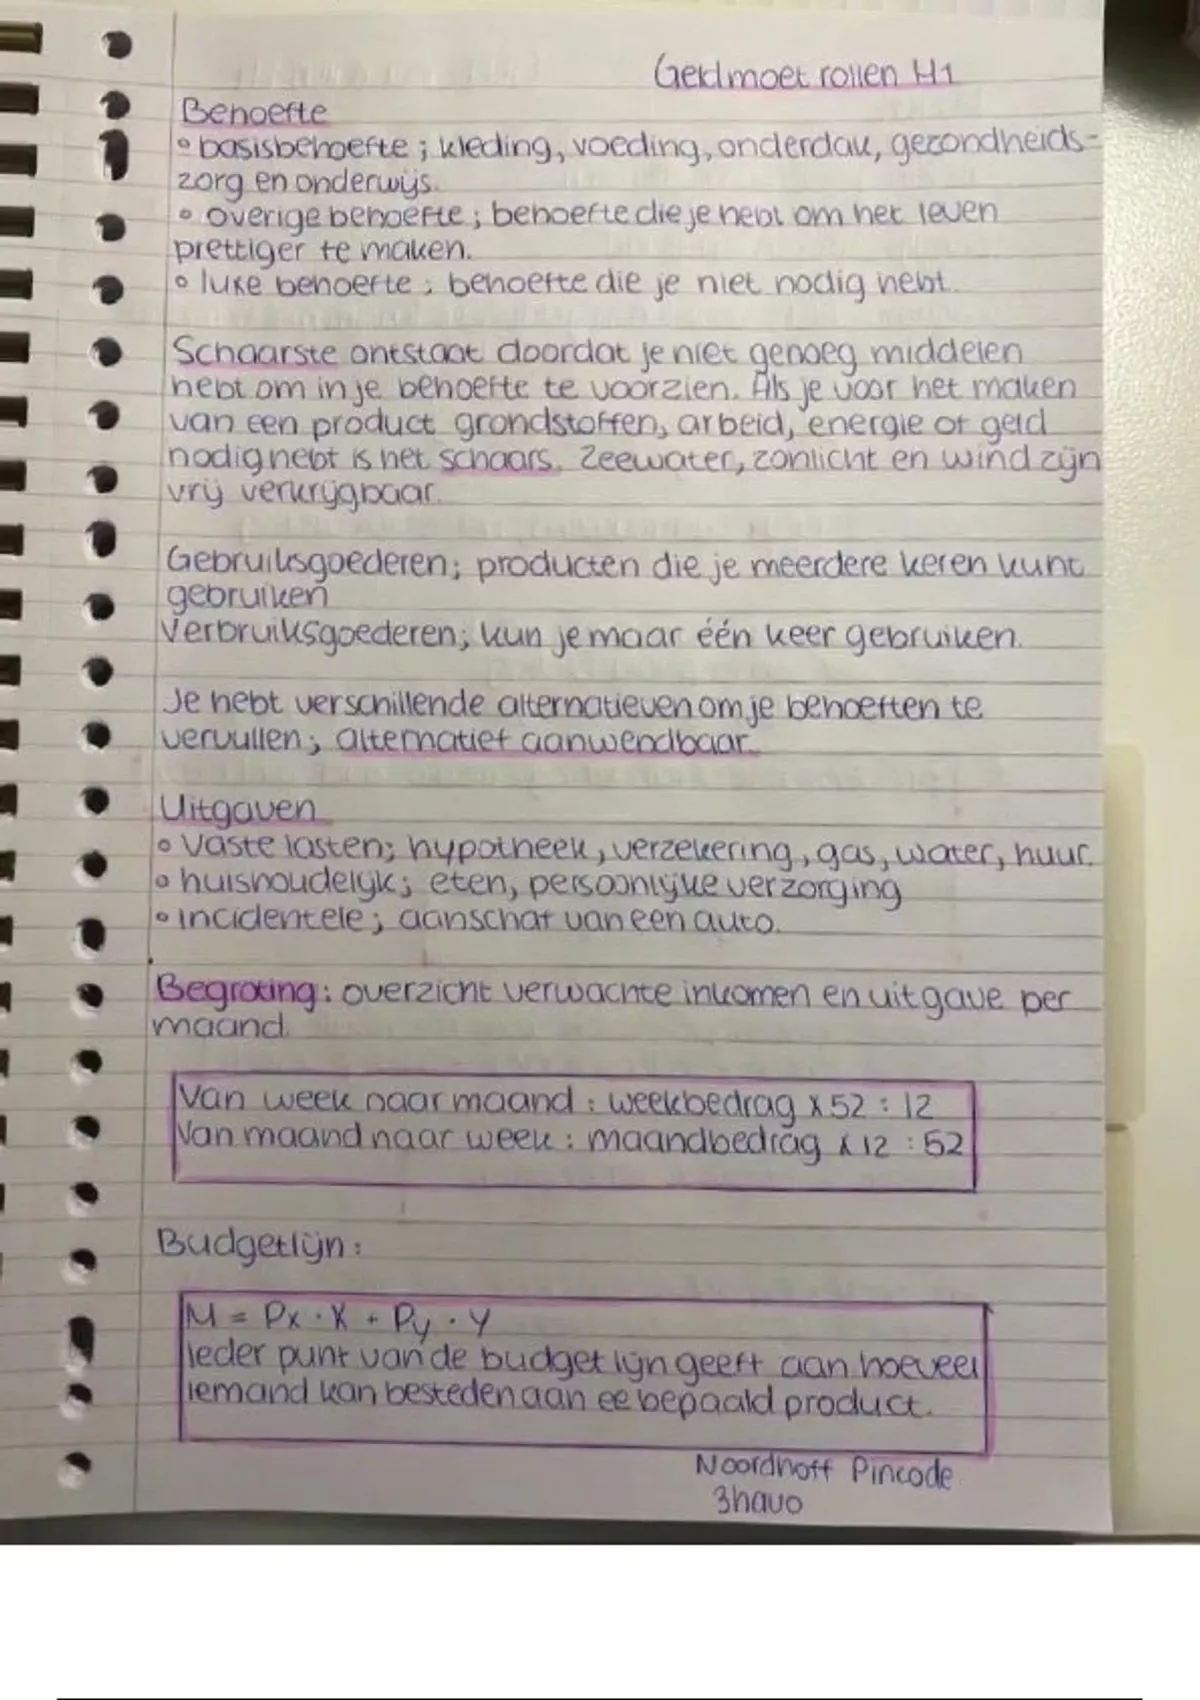 Geld moet rollen H1
Behoefte
• basisbehoefte ; kleding, voeding, onderdak, gezondheids-
zorg en onderwijs.
• overige behoefte ; behoefte die je hebt om het leven
prettiger te maken.
• luxe behoefte ; behoefte die je niet nodig hebt.
Schaarste ontstaat doordat je niet genoeg middelen
hebt om in je behoefte te voorzien. Als je voor het maken
van een product grondstoffen, arbeid, energie of geld
nodig hebt is het schaars. Zeewater, zonlicht en wind zijn
vrij verkrijgbaar.
Gebruiksgoederen ; producten die je meerdere keren kunt
gebruiken
Verbruiksgoederen ; kun je maar één keer gebruiken.
Je hebt verschillende alternatieven om je behoeften te
vervullen ; alternatief aanwendbaar.
Uitgaven
• Vaste lasten ; hypotheek, verzekering, gas, water, huur.
• huishoudelijk ; eten, persoonlijke verzorging
• incidentele ; aanschaf van een auto.
Begroting : overzicht verwachte inkomen en uitgave per
maand
Van week naar maand : weekbedrag x 52 : 12
Van maand naar week : maandbedrag x 12 : 52
Budgetlijn :
M = Px · X + Py · Y
Ieder punt van de budgetlijn geeft aan hoeveel
iemand kan besteden aan ee bepaald product.
Noordhoff Pincode
3havo